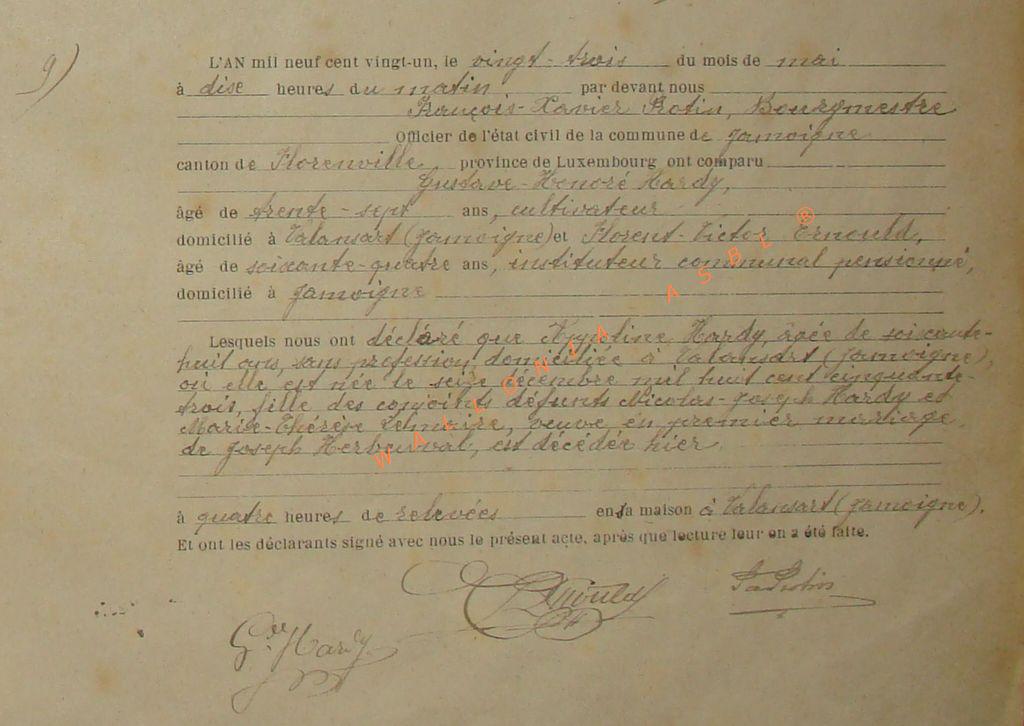 9)
L'AN mil neuf cent vingt-un, le vingt-trois du mois de mai
à dise heures du matin par devant nous
François-Xavier Rotin, Bourgmestre
Officier de l'état civil de la commune de Jamoigne
canton de Florenville, province de Luxembourg ont comparu
Gustave-Honoré Hardy,
âgé de trente-sept ans, cultivateur
domicilié à Valansart (Jamoigne) et Florent-Victor Ernould,
âgé de soixante-quatre ans, instituteur communal pensionné,
domicilié à Jamoigne
Lesquels nous ont déclaré que Hardy, âgée de soixante-
huit ans, sans profession, domiciliée à Valansart (Jamoigne),
où elle est née le seize décembre mil huit cent cinquante-
trois, fille des conjoints défunts Nicolas-Joseph Hardy et
Marie-Thérèse Lemaire, veuve, en premier mariage,
de Joseph Herbeuval, est décédée hier
à quatre heures de relevées en sa maison à Valansart (Jamoigne).
Et ont les déclarants signé avec nous le présent acte, après que lecture leur en a été faite.
Ernould
Hardy
WALLONICA ASBL ®